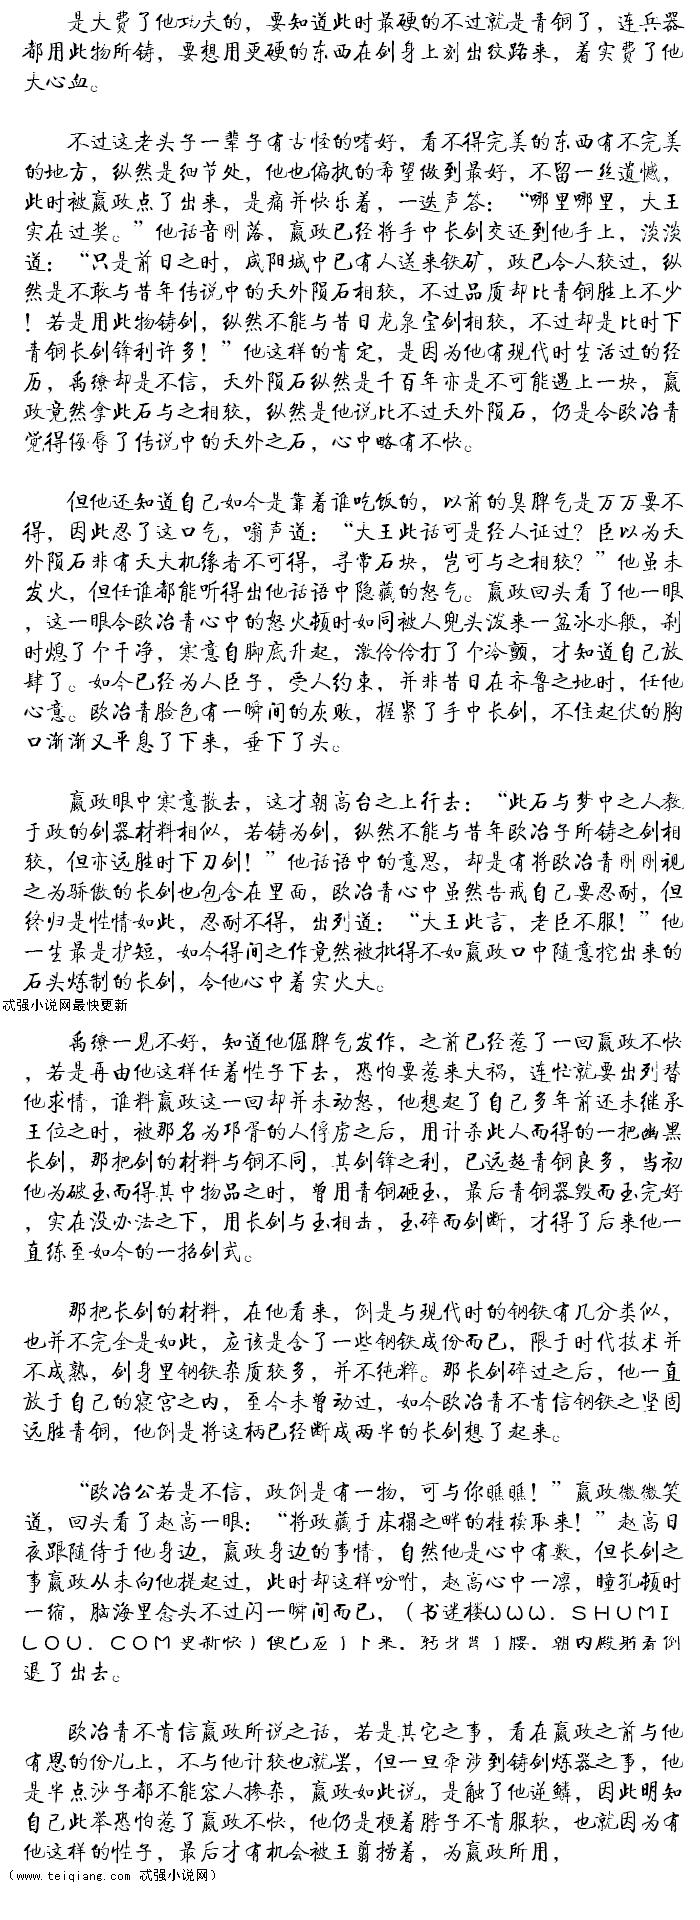 是大费了他功夫的，要知道此时最硬的不过就是青铜了，连兵器
都用此物所铸，要想用更硬的东西在剑身上刻出纹路来，着实费了他
大心血。
不过这老头子一辈子有古怪的嗜好，看不得完美的东西有不完美
的地方，纵然是细节处，他也偏执的希望做到最好，不留一丝遗憾，
此时被嬴政点了出来，是痛并快乐着，一迭声答：“哪里哪里，大王
实在过奖。”他话音刚落，嬴政已经将手中长剑交还到他手上，淡淡
道：“只是前日之时，咸阳城中已有人送来铁矿，政已令人较过，纵
然是不敢与昔年传说中的天外陨石相较，不过品质却比青铜胜上不少
！若是用此物铸剑，纵然不能与昔日龙泉宝剑相较，不过却是比时下
青铜长剑锋利许多！”他这样的肯定，是因为他有现代时生活过的经
历，禹缭却是不信，天外陨石纵然是千百年亦是不可能遇上一块，嬴
政竟然拿此石与之相较，纵然是他说比不过天外陨石，仍是令欧冶青
觉得侮辱了传说中的天外之石，心中略有不快。
但他还知道自己如今是靠着谁吃饭的，以前的臭脾气是万万要不
得，因此忍了这口气，嗡声道：“大王此话可是经人证过？臣以为天
外陨石非有天大机缘者不可得，寻常石块，岂可与之相较？”他虽未
发火，但任谁都能听得出他话语中隐藏的怒气。嬴政回头看了他一眼
，这一眼令欧冶青心中的怒火顿时如同被人兜头泼来一盆冰水般，刹
时熄了个干净，寒意自脚底升起，激伶伶打了个冷颤，才知道自己放
肆了。如今已经为人臣子，受人约束，并非昔日在齐鲁之地时，任他
心意。欧冶青脸色有一瞬间的灰败，握紧了手中长剑，不住起伏的胸
口渐渐又平息了下来，垂下了头。
嬴政眼中寒意散去，这才朝高台之上行去：“此石与梦中之人教
于政的剑器材料相似，若铸为剑，纵然不能与昔年欧冶子所铸之剑相
较，但亦远胜时下刀剑！”他话语中的意思，却是有将欧冶青刚刚视
之为骄傲的长剑也包含在里面，欧冶青心中虽然告戒自己要忍耐，但
终归是性情如此，忍耐不得，出列道：“大王此言，老臣不服！”他
一生最是护短，如今得间之作竟然被批得不如嬴政口中随意挖出来的
石头炼制的长剑，令他心中着实火大。
忒强小说网最快更新
禹缭一见不好，知道他倔脾气发作，之前已经惹了一回嬴政不快
，若是再由他这样任着性子下去，恐怕要惹来大祸，连忙就要出列替
他求情，谁料嬴政这一回却并未动怒，他想起了自己多年前还未继承
王位之时，被那名为邛胥的人俘虏之后，用计杀此人而得的一把幽黑
长剑，那把剑的材料与铜不同，其剑锋之利，已远超青铜良多，当初
他为破玉而得其中物品之时，曾用青铜砸玉，最后青铜器毁而玉完好
，实在没办法之下，用长剑与玉相击，玉碎而剑断，才得了后来他一
直练至如今的一招剑式。
那把长剑的材料，在他看来，倒是与现代时的钢铁有几分类似，
也并不完全是如此，应该是含了一些钢铁成份而已，限于时代技术并
不成熟，剑身里钢铁杂质较多，并不纯粹。那长剑碎过之后，他一直
放于自己的寝宫之内，至今未曾动过，如今欧冶青不肯信钢铁之坚固
远胜青铜，他倒是将这柄已经断成两半的长剑想了起来。
“欧冶公若是不信，政倒是有一物，可与你瞧瞧！”嬴政微微笑
道，回头看了赵高一眼：“将政藏于床榻之畔的桂椟取来！”赵高日
夜跟随侍于他身边，嬴政身边的事情，自然他是心中有数，但长剑之
事嬴政从未向他提起过，此时却这样吩咐，赵高心中一凛，瞳孔顿时
一缩，脑海里念头不过闪一瞬间而已，（书迷楼WWW．SHUMI
LOU．COM更新快）便已应了下来，躬身弯了腰，朝内殿躬着倒
退了出去。
欧冶青不肯信嬴政所说之话，若是其它之事，看在嬴政之前与他
有恩的份儿上，不与他计较也就罢，但一旦牵涉到铸剑炼器之事，他
是半点沙子都不能容人掺杂，嬴政如此说，是触了他逆鳞，因此明知
自己此举恐怕惹了嬴政不快，他仍是梗着脖子不肯服软，也就因为有
他这样的性子，最后才有机会被王翦捞着，为嬴政所用，
（www.teiqiang.com 忒强小说网）